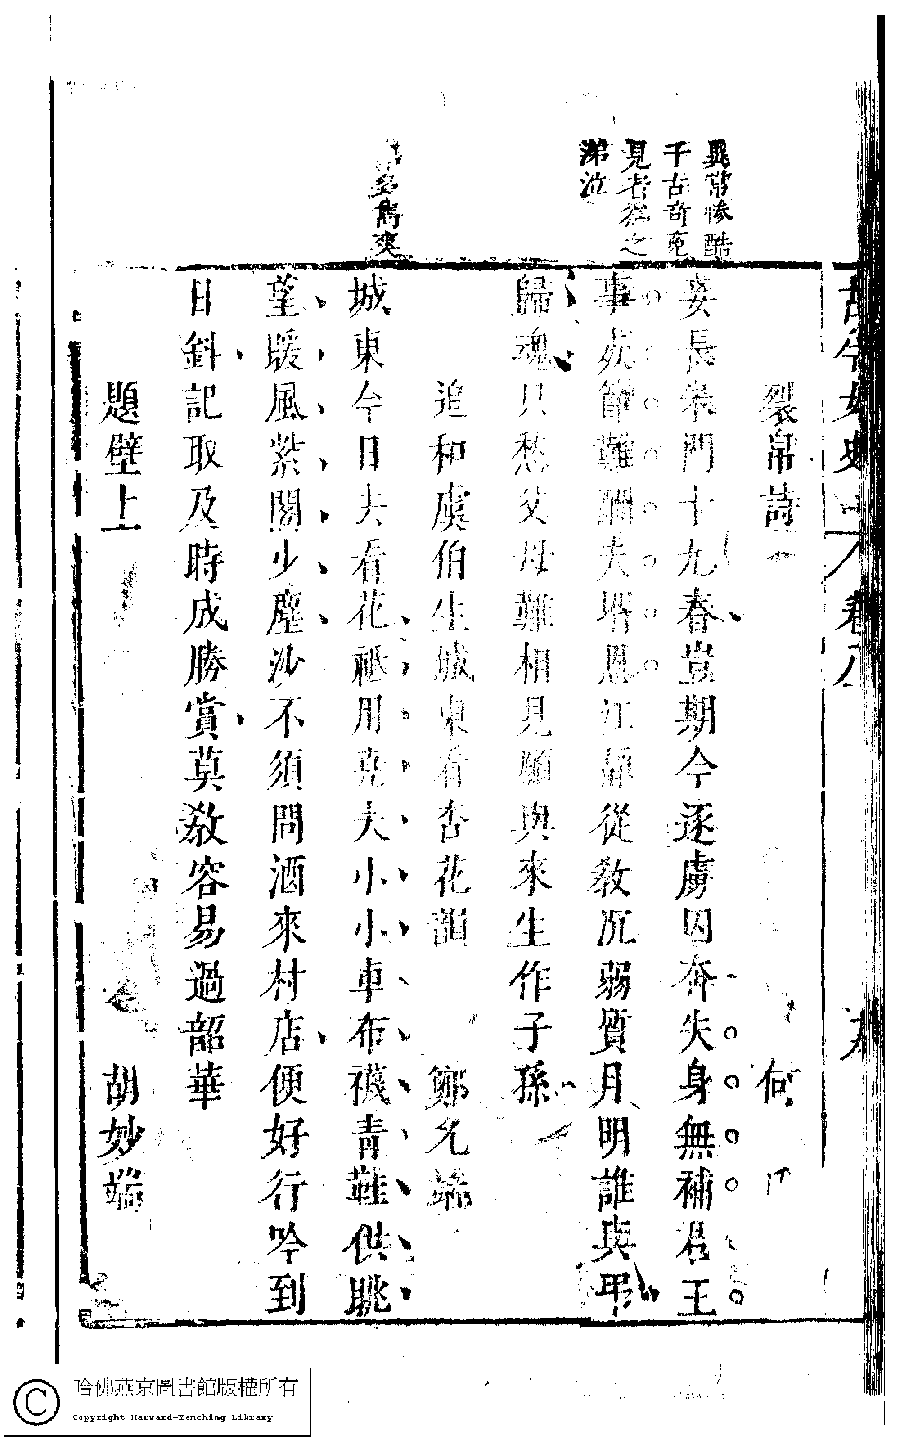 異常慘酷
千古奇冤
見者為之
涕泣
雋爽
古今女史 卷八
裂帛詩 何
妾長朱門十九春豈期今逐虜囚奔失身無補君王
事死節難酬夫壻恩江靜從教沉弱質月明誰與弔
歸魂只愁父母難相見願與來生作子孫
追和虞伯生城東看杏花韻 鄭允端
城東今日去看花祗用堯夫小小車布襪青鞋供眺
望暖風紫陽少塵沙不須問酒來村店便好行吟到
日斜記取及時成勝賞莫教容易過韶華
題壁上 胡妙端
哈佛燕京圖書館版權所有
Copyright Harvard-Yenching Library